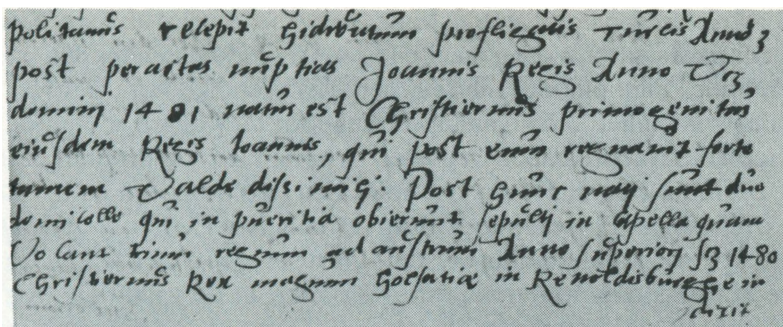 politanus recepit hidruntum profligatis Turcis Anno 3
post peractas nuptias Joannis Regis Anno
domini 1481 natus est Christiernus primogenitus
eiusdem Regis Joannis, qui post eum regnavit sorte
tamen Valde dissimili. Post hunc nati sunt duo
domicelli qui in pueritia obierunt sepulti in capella quam
Vocant trium regum ad austrum Anno superiori 1480
Christiernus Rex magnum Holsatiae in Renoldisburge in
dixit